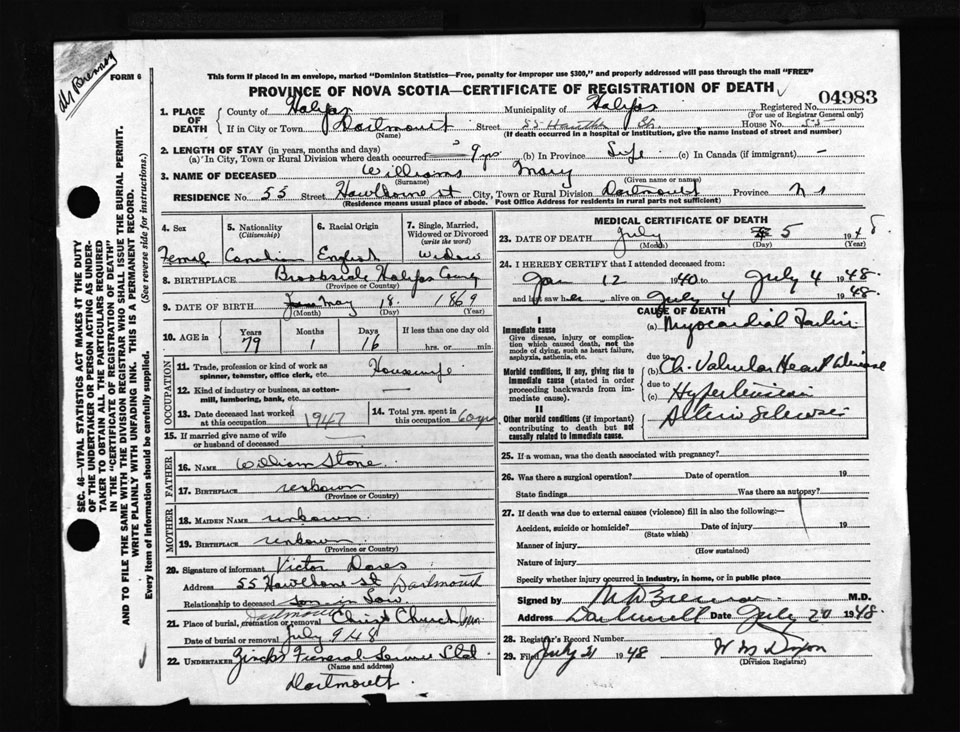 Dr Brennan
FORM 6
This form if placed in an envelope, marked "Dominion Statistics—Free, penalty for improper use $300," and properly addressed will pass through the mail "FREE"
PROVINCE OF NOVA SCOTIA—CERTIFICATE OF REGISTRATION OF DEATH
04983
1. PLACE OF DEATH
County of Halifax Municipality of Halifax Registered No.
(For use of Registrar General only)
If in City or Town Dartmouth Street 55 Hawthorne St. House No. 55
(Name) (If death occurred in a hospital or institution, give the name instead of street and number)
2. LENGTH OF STAY (in years, months and days)
(a) In City, Town or Rural Division where death occurred 9 yrs (b) In Province Life (c) In Canada (if immigrant) —
3. NAME OF DECEASED Williams Mary
(Surname) (Given name or names)
RESIDENCE No. 55 Street Hawthorne st City, Town or Rural Division Dartmouth Province N S
(Residence means usual place of abode. Post Office Address for residents in rural parts not sufficient)
4. Sex 5. Nationality (Citizenship) 6. Racial Origin 7. Single, Married, Widowed or Divorced (write the word)
Female Canadian English Widow
8. BIRTHPLACE Brookside Halifax County
(Province or Country)
9. DATE OF BIRTH May 18. 1869
(Month) (Day) (Year)
10. AGE in Years Months Days If less than one day old
79 1 16 hrs. or min.
OCCUPATION
11. Trade, profession or kind of work as spinner, teamster, office clerk, etc. Housewife
12. Kind of industry or business, as cotton-mill, lumbering, bank, etc. —
13. Date deceased last worked at this occupation 1947 14. Total yrs. spent in this occupation 60 yrs
15. If married give name of wife or husband of deceased —
FATHER
16. NAME William Stone
17. BIRTHPLACE unknown
(Province or Country)
MOTHER
18. MAIDEN NAME unknown
19. BIRTHPLACE unknown
(Province or Country)
20. Signature of informant Victor Dares
Address 55 Hawthorne st Dartmouth
Relationship to deceased Son in Law
21. Place of burial, cremation or removal Dartmouth Christ Church
Date of burial or removal July 9 48
22. UNDERTAKER Zinck's Funeral Service Ltd
(Name and address)
Dartmouth.
MEDICAL CERTIFICATE OF DEATH
23. DATE OF DEATH July 5 1948
(Month) (Day) (Year)
24. I HEREBY CERTIFY that I attended deceased from:
Jan 12 1940 to July 4 1948.
and last saw her alive on July 4 1948.
CAUSE OF DEATH
I
Immediate cause
Give disease, injury or complication which caused death, not the mode of dying, such as heart failure, asphyxia, asthenia, etc.
(a) Myocardial Failure
due to
Morbid conditions, if any, giving rise to immediate cause (stated in order proceeding backwards from immediate cause).
(b) Ch. Valvular Heart Disease
due to
(c) Hypertension
II
Other morbid conditions (if important) contributing to death but not causally related to immediate cause.
Arterio Sclerosis
25. If a woman, was the death associated with pregnancy?
26. Was there a surgical operation? Date of operation 19
State findings Was there an autopsy?
27. If death was due to external causes (violence) fill in also the following:—
Accident, suicide or homicide? Date of injury 19
(State which)
Manner of injury
(How sustained)
Nature of injury
Specify whether injury occurred in industry, in home, or in public place
Signed by M D Brennan M.D.
Address Dartmouth Date July 20 1948.
28. Registrar's Record Number
29. Filed July 21 1948 W M Dixon
(Division Registrar)
SEC. 46—VITAL STATISTICS ACT MAKES IT THE DUTY
OF THE UNDERTAKER OR PERSON ACTING AS UNDER-
TAKER TO OBTAIN ALL THE PARTICULARS REQUIRED
IN THE "CERTIFICATE OF REGISTRATION OF DEATH"
AND TO FILE THE SAME WITH THE DIVISION REGISTRAR WHO SHALL ISSUE THE BURIAL PERMIT.
WRITE PLAINLY WITH UNFADING INK. THIS IS A PERMANENT RECORD.
Every item of information should be carefully supplied. (See reverse side for instructions.)